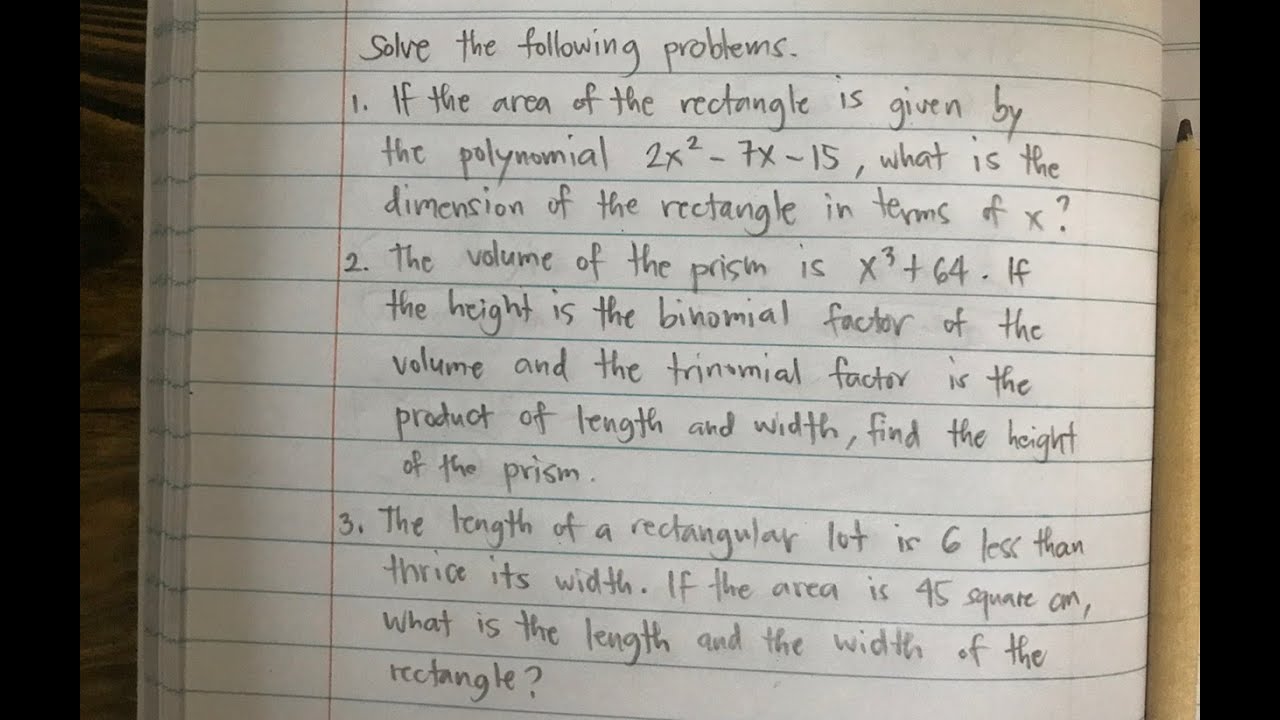 Solve the following problems.
1. If the area of the rectangle is given by
the polynomial 2x² - 7x - 15, what is the
dimension of the rectangle in terms of x?
2. The volume of the prism is x³ + 64. If
the height is the binomial factor of the
volume and the trinomial factor is the
product of length and width, find the height
of the prism.
3. The length of a rectangular lot is 6 less than
thrice its width. If the area is 45 square cm,
what is the length and the width of the
rectangle?